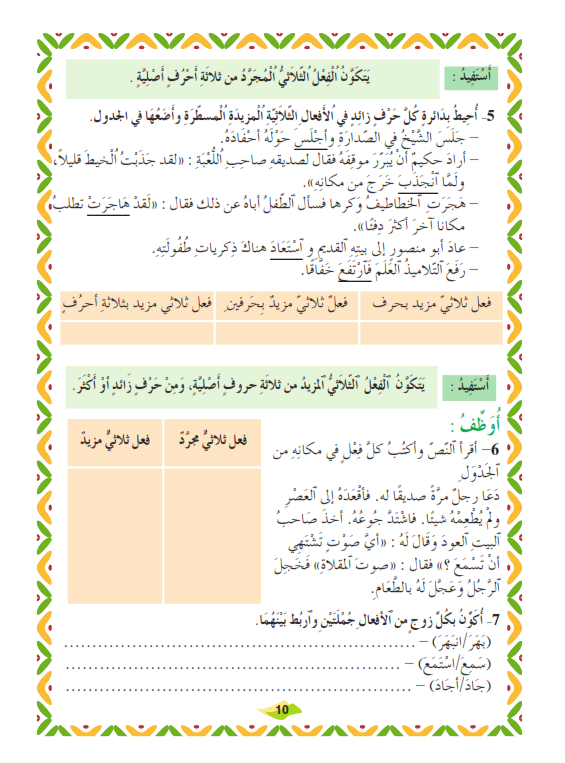 أَسْتَفِيدُ :
يَتَكَوَّنُ الْفِعْلُ الثّلَاثِيُّ الْمُجَرَّدُ من ثلاثةِ أَحْرُفٍ أَصْلِيَّةٍ .
5- أُحِيطُ بدَائرةٍ كُلَّ حَرْفٍ زائدٍ في الأَفعال الثّلَاثِيّةِ الْمَزيدَةِ الْمسطّرَةِ وأَضَعُهَا في الجدول.
– جَلَسَ الشَّيْخُ في الصّدارَةِ وأَجْلَسَ حَوْلَهُ أحْفَادَهُ.
– أرادَ حكيمٌ أنْ يُبَرِّرَ موقِفَهُ فقال لصديقهِ صاحبِ اللُّعْبَةِ : «لقد جَذَبْتُ الْخيطَ قليلاً،
ولَمَّا ٱنْجَذَبَ خَرَجَ من مكانِهِ».
– هَجَرَتِ الخطاطيفُ وَكرها فسأل الطّفلُ أباهُ عن ذلك فقال : «لَقدْ هَاجَرَتْ تطلبُ
مكانا آخرَ أكثرَ دِفئًا».
– عادَ أبو منصور إلى بيتِهِ القديمِ و ٱسْتَعَادَ هناكَ ذِكرياتِ طُفُولَتِهِ.
– رَفَعَ التّلاميذُ العَلَمَ فَٱرْتَفَعَ خَفَّاقًا.
فعل ثلاثيّ مزيد بحرف
فعلٌ ثلاثيّ مزيدٌ بِحَرفينِ
فعل ثلاثي مزيد بثلاثةِ أحرُفٍ
أَسْتَفِيدُ :
يَتَكَوَّنُ ٱلْفِعْلُ ٱلثّلَاثيُّ ٱلمزيدُ من ثلاثَةِ حروفٍ أصْلِيَّةٍ، وَمِنْ حَرْفٍ زَائدٍ أوْ أكْثَرَ.
أُوَظِّفُ :
6– أقرأ ٱلنّصّ وأكتُبُ كلَّ فِعْلٍ في مكانِهِ من
ٱلجَدْوَلِ
فعل ثلاثيٌّ مجرَّدٌ
فعل ثلاثيٌّ مزيدٌ
دَعَا رجلٌ مرَّةً صديقًا له. فأقْعَدَهُ إلى ٱلعَصْرِ
ولمْ يُطْعِمْهُ شيئًا. فاشتَدَّ جُوعُهُ. أخذَ صَاحبُ
ٱلبيتِ ٱلعودَ وَقَالَ لَهُ : «أيَّ صَوْتٍ تَشْتَهِي
أنْ تَسْمَعَ ؟» فقال : «صوتَ ٱلمقلاةِ» فَخَجِلَ
ٱلرَّجُلُ وَعَجَّلَ لَهُ بالطَّعَامِ.
7– أُكَوِّنُ بكُلِّ زوجٍ من ٱلأفعالِ جُمْلَتَيْنِ وٱربُط بَيْنَهُمَا.
(بَهَرَ/انبَهَرَ) – ................................................
(سَمِعَ/اسْتَمَعَ) – ................................................
(جَادَ/أجادَ) – ................................................
10